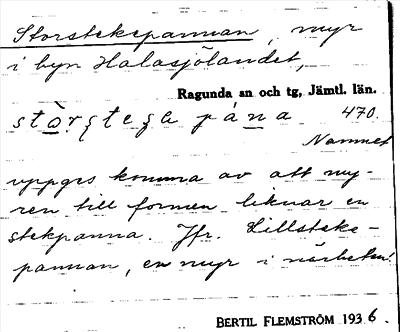 Storstekepannan, myr
i byn Halasjölandet,
Ragunda sn och tg, Jämtl. län.
470.
Namnet
uppges komma av att my-
ren till formen liknar en
stekpanna. Jfr. Lillsteke-
pannan, en myr i närheten!
BERTIL FLEMSTRÖM 1936.